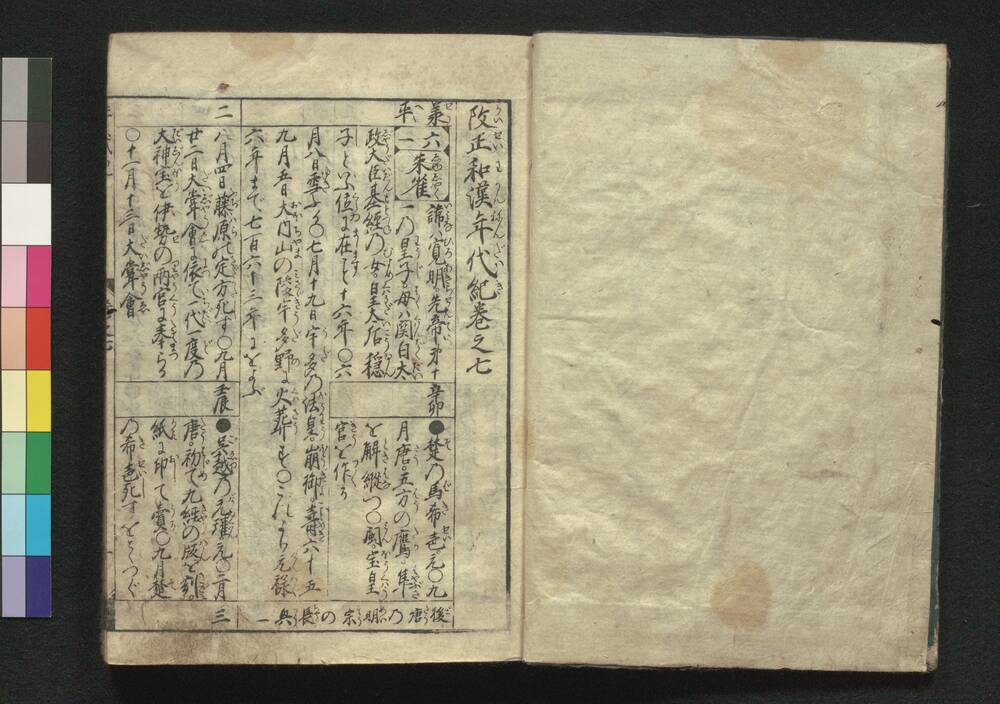 改正和漢年代紀巻之七
承平
六一
朱雀
諱ハ寛明先帝第十
一の皇子母ハ関白太
政大臣基經の女皇太后穏
子といふ位に在こと十六年〇六
月八日雪ふる〇七月十九日宇多の法皇崩御寿六十五
九月五日大内山の陵宇多野に火葬す〇これより元禄
六年まで七百六十三年におよぶ
辛卯
●楚の馬希声元〇九
月唐五方の鷹隼
を解縦つ〇閩宝皇
官を作る
後唐の明宗の長興一
二
八月四日藤原の定方死す〇九月
廿二日大甞會に依て一代一度の
大神宝を伊勢の両宮に奉らる
〇十一月十三日大甞會
壬辰
●呉越の元瓘元〇二月
唐初て九經の版を刻
紙に印て賣〇九月楚
の希声死す
三